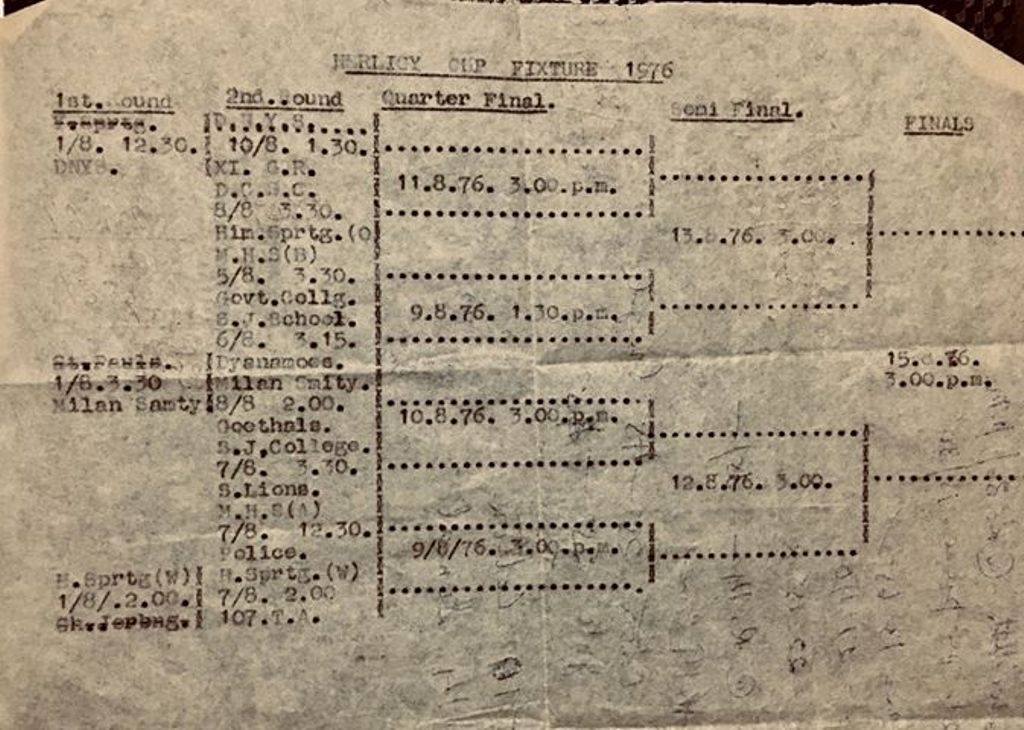 HERLICY CUP FIXTURE 1976
1st. Round
2nd. Round
Quarter Final.
Semi Final.
FINALS
1/8. 12.30.
DNYS.
D.N.Y.S.....
10/8. 1.30.
XI. G.R.
D.C.S.C.
8/8 3.30.
Him.Sprtg.(O
M.H.S(B)
5/8. 3.30.
Govt.Collg.
S.J.School.
6/8. 3.15.
St.Pauls.
1/8.3.30
Milan Samty
Dysnamoes.
Milan Smity.
8/8 2.00.
Goethals.
S.J,College.
7/8. 3.30.
S.Lions.
M.H.S(A)
7/8. 12.30.
Police.
H.Sprtg(W)
1/8/.2.00.
H.Sprtg.(W)
7/8. 2.00
107.T.A.
11.8.76. 3.00.p.m.
9.8.76. 1.30.p.m.
10.8.76. 3.00.p.m.
9/8/76. 3.00.p.m.
13.8.76. 3.00.
12.8.76. 3.00.
15.8.76.
3.00.p.m.